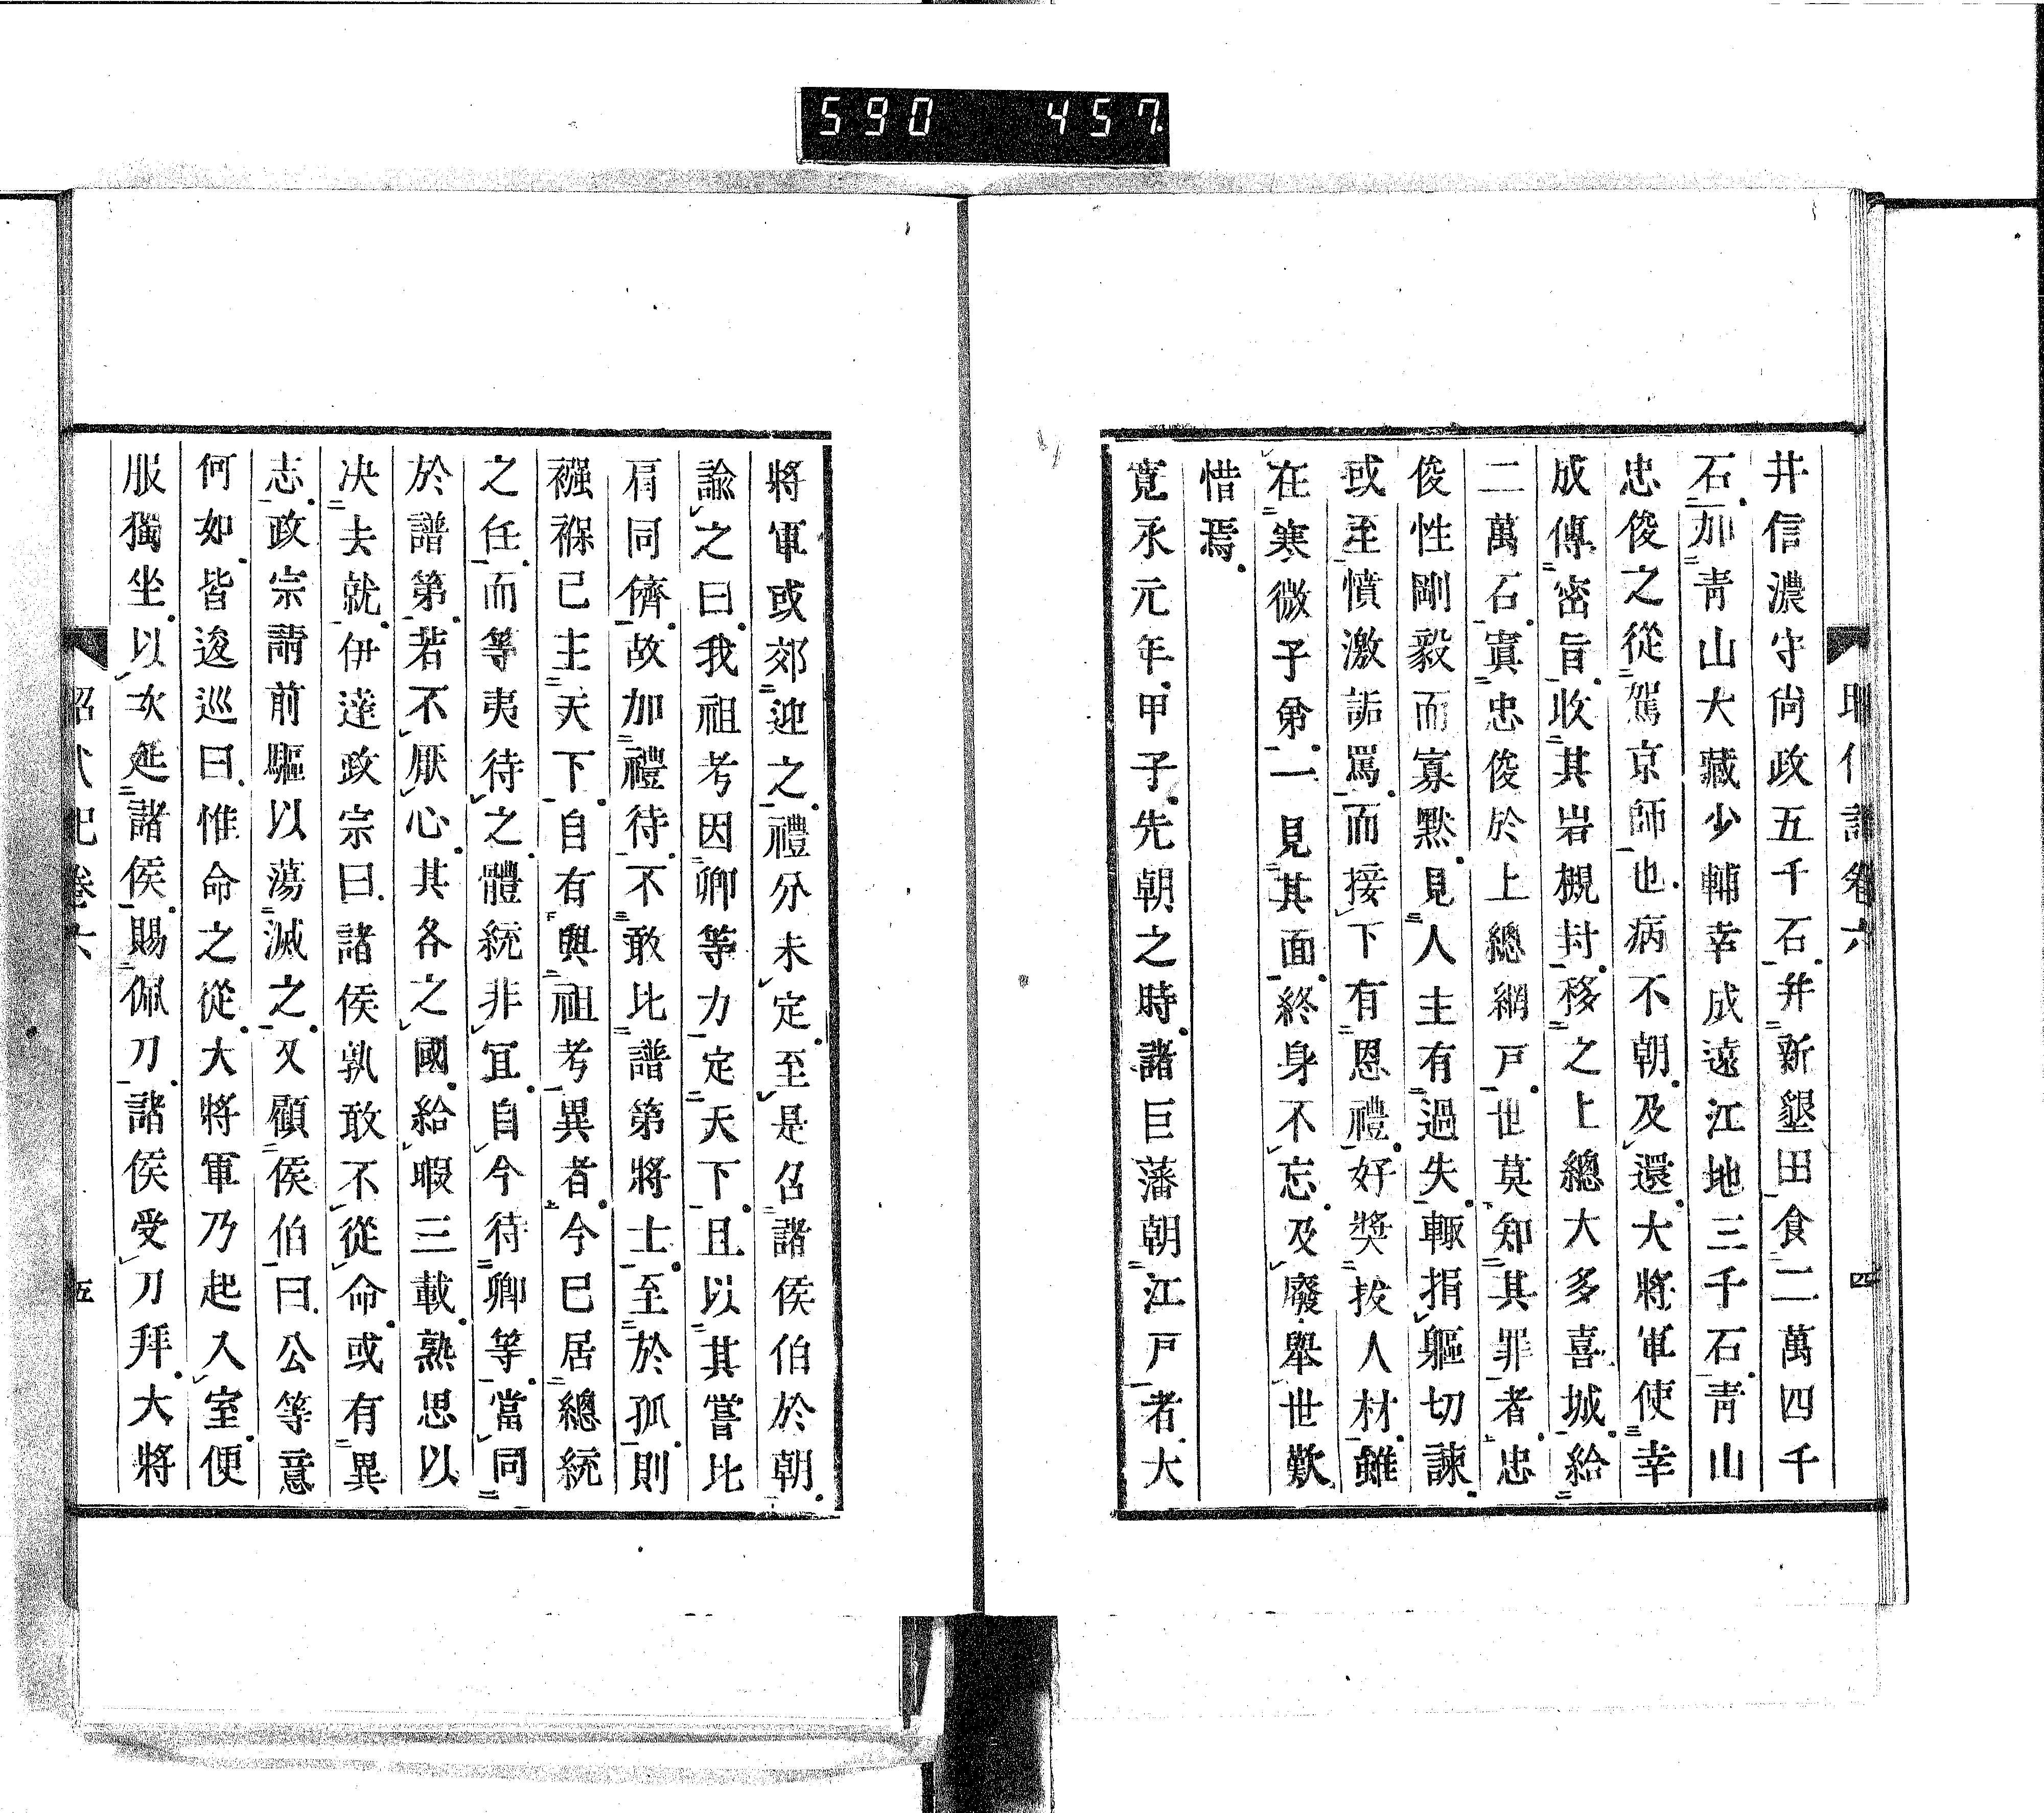 590 457
井信濃守尚政五千石并新墾田食二萬四千
石加青山大藏少輔幸成遠江地三千石青山
忠俊之從駕京師也病不朝及還大將軍使幸
成傳密旨收其岩槻封移之上總大多喜城給
二萬石寘忠俊於上總網戸世莫知其罪者忠
俊性剛毅而寡默見人主有過失輙捐軀切諫
或至憤激詬罵而接下有恩禮好奬拔人材雖
在寒微子弟一見其面終身不忘及廢舉世歎
惜焉
寛永元年甲子先朝之時諸巨藩朝江戸者大
四
將軍或郊迎之禮分未定至是召諸侯伯於朝
諭之曰我祖考因卿等力定天下且以其嘗比
肩同儕故加禮待不敢比譜第將士至於孤則
襁褓已主天下自有與祖考異者今已居總統
之任而等夷待之體統非宜自今待卿等當同
於譜第若不厭心其各之國給暇三載熟思以
决去就伊達政宗曰諸侯孰敢不從命或有異
志政宗請前驅以蕩滅之又顧侯伯曰公等意
何如皆逡巡曰惟命之從大將軍乃起入室便
服獨坐以次延諸侯賜佩刀諸侯受刀拜大將
五